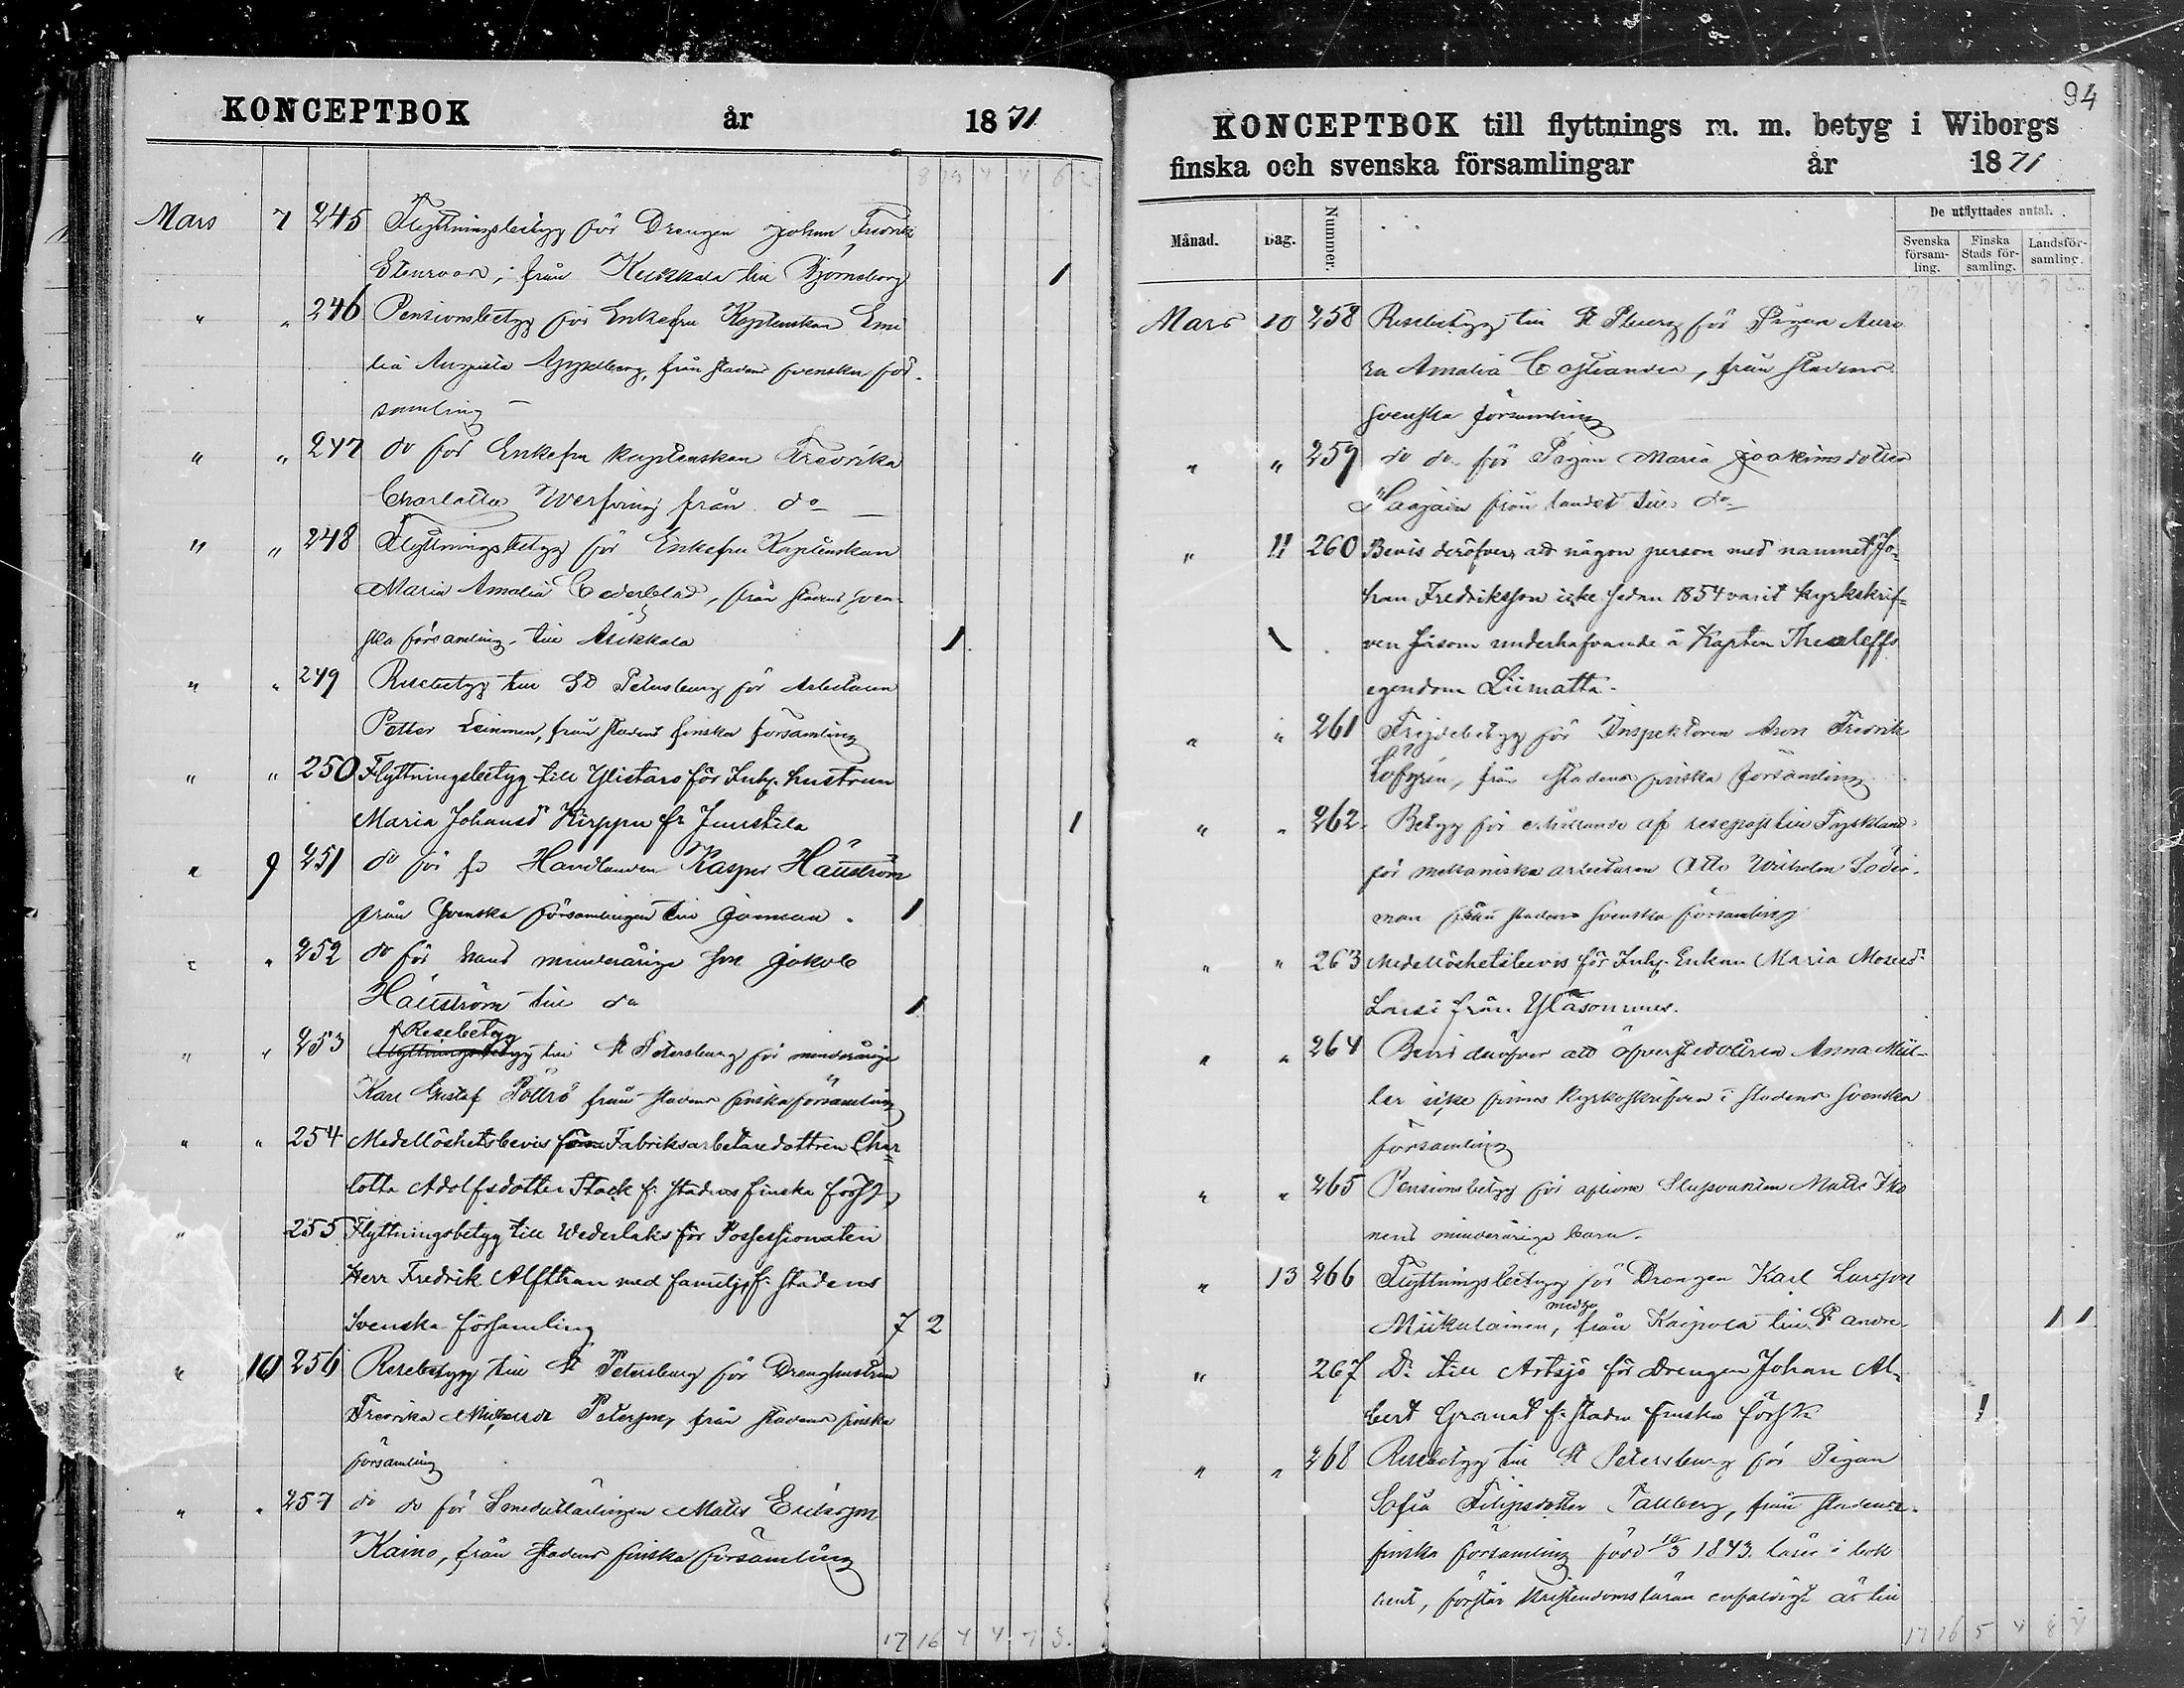 KONCEPTBOK år 1871
8 4 4 6
Mars 7 245 Flyttningsbetyg för Drengen Johan Fredrik
Stenroos, från Kuikkala till Björneborg 1
" " 246 Pensionsbetyg för Enkefru Kaptenskan Emi
lia Augusta Gyldberg, från stadens svenska för-
samling
" " 247 do för Enkefru Kaptenskan Fredrika
Charlotta Werfving från do
" " 248 Flyttningsbetyg för Enkefru Kaptenskan
Maria Amalia Cederblad, från stadens sven-
ska församling till Asikkala 1
" " 249 Resebetyg till St Petersburg för Arbetaren
Petter Leinonen, från stadens finska församling
" " 250 Flyttningsbetyg till Ylistaro för Inhy. hustrun
Maria Johansd Kirppu fr Juustila 1
" 9 251 do för fd Handlanden Kasper Hällström
från Svenska församlingen till Jomala. 1
" " 252 do för hans minderårige son Jakob
Hällström till do 1
Resebetyg
" " 253 Flyttningsbetyg till St Petersburg för minderårige
Karl Gustaf Pöllrö från stadens finska församling
" " 254 Medellöshetsbevis för Fabriksarbetaredottren Char-
lotta Adolfsdotter Stack fr. stadens finska förs,
" 255 Flyttningsbetyg till Wederlaks för Possessionaten
Herr Fredrik Alfthan med familj fr. stadens
Svenska församling 7 2
" 10 256 Resebetyg till St Petersburg för Drenghustrun
Fredrika Petersson, från stadens finska
församling
" " 257 do do för Smedslärlingen Matts Eriksson
Kaino, från stadens finska församling
17 16 4 4 7 3.
94
KONCEPTBOK till flyttnings m. m. betyg i Wiborgs
finska och svenska församlingar år 1871
Månad. Dag. Nummer. De utflyttades antal.
Svenska försam-ling. Finska Stads för-samling. Landsför-samling.
Mars 10 258 Resebetyg till St Petersburg för Pigan Auro
ra Amalia Castiander, från stadens
svenska församling
" " 259 do do för Pigan Maria Joakimsdotter
från landet till do
" 11 260 Bevis deröfver, att någon person med namnet Jo-
han Fredriksson icke sedan 1854 varit kyrkskrif-
ven såsom underhafvande å Kapten Thesleffs
egendom Liimatta.
" " 261 Frejdebetyg för Inspektoren Aron Fredrik
Löfgrén, från stadens finska församling
" " 262. Betyg för erhållande af resepass till Tyskland
för mekaniska arbetaren Otto Wilhelm Söder-
man från stadens svenska församling
" " 263 Medellöshetsbevis för Inhy. Enkan Maria Mosesd:
Lausi från Yläsommes.
" " 264 Bevis deröfver att öfverstedottren Anna Mül-
ler icke finnes kyrkoskrifven i stadens svenska
församling
" " 265 Pensionsbetyg för aflidne Matts Iko
nens minderåriga barn.
" 13 266 Flyttningsbetyg för Drengen Karl Larsson
med hu
Miikulainen, från Kaipola till St Andre 1 1
" 267 Do till Artsjö för Drengen Johan Al-
bert Granat fr. staden finska förs 1
" " 268 Resebetyg till St Petersburg för Pigan
Sofia Filipsdotter Tallberg, från stadens
finska församling född 10/3 1843. läser i bok
rent, förstår kristendomsläran enfaldigt är till
17 16 5 4 8 4